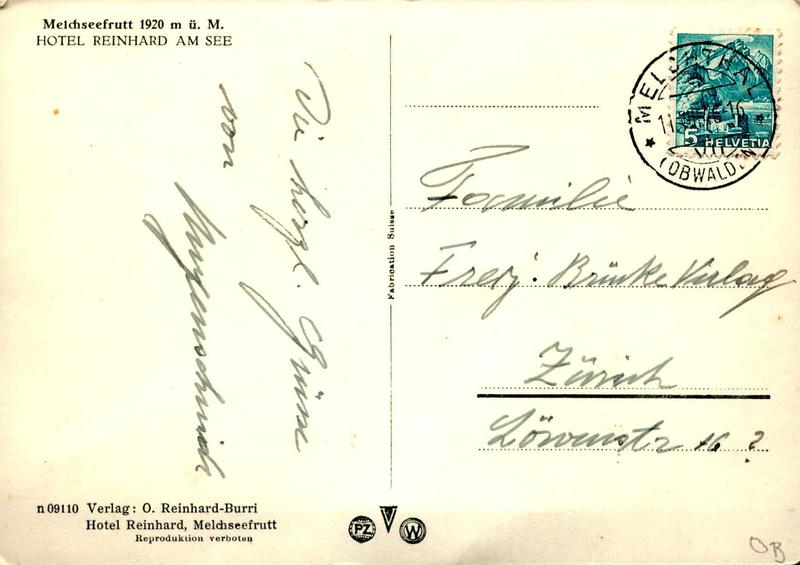 Melchseefrutt 1920 m ü. M.
HOTEL REINHARD AM SEE
Die herzl. Grüsse
von
Fabrication Suisse
MELCHTHAL
(OBWALDEN)
5 HELVETIA
Familie
Frey: Brücke Verlag
Zürich
Löwenstr 16 ?
n 09110 Verlag: O. Reinhard-Burri
Hotel Reinhard, Melchseefrutt
Reproduktion verboten
PZ
W
OB